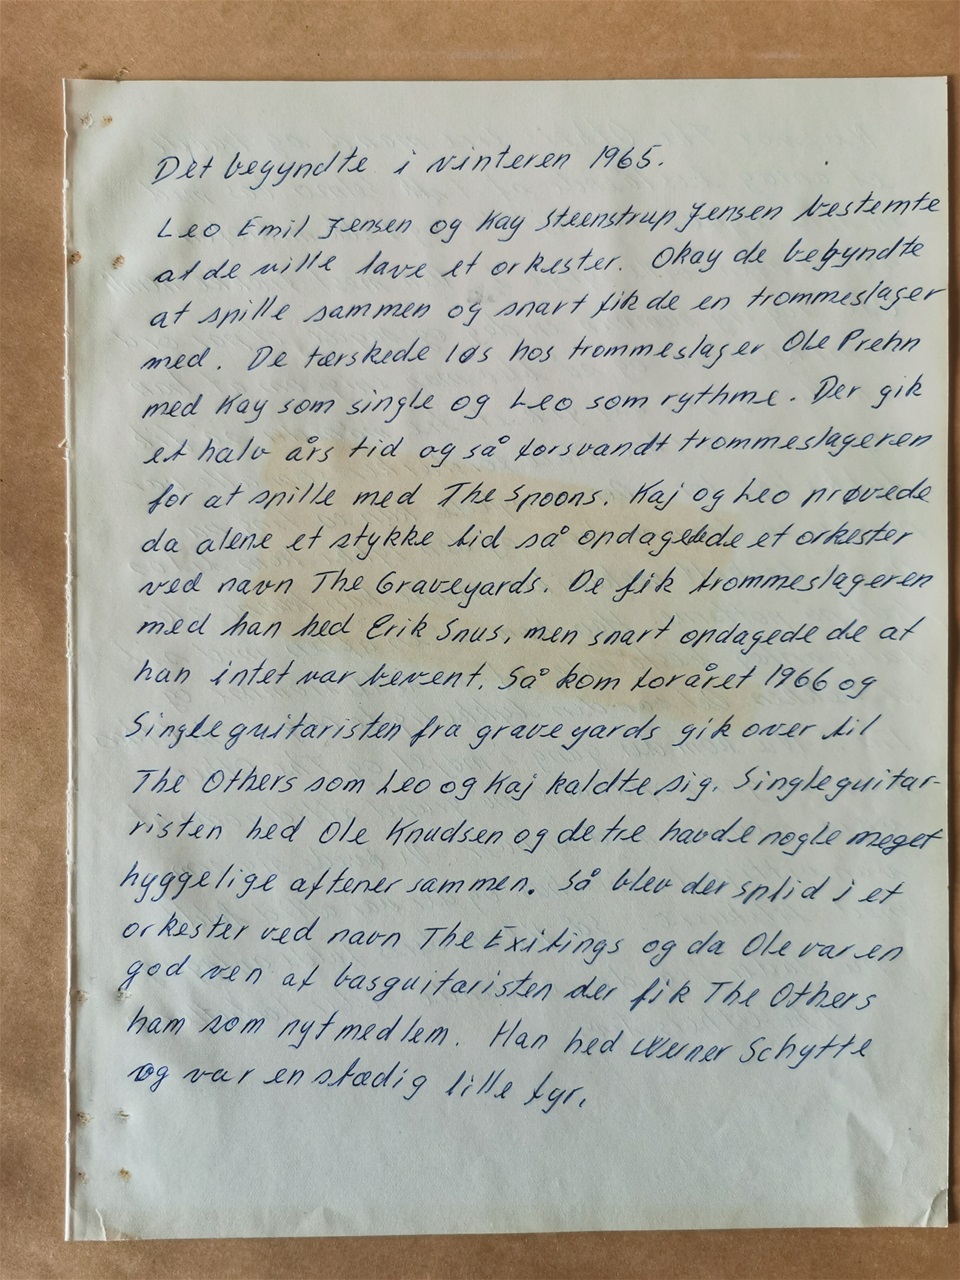 Det begyndte i vinteren 1965.
Leo Emil Jensen og Kay Steenstrup Jensen bestemte
at de ville lave et orkester. Okay de begyndte
at spille sammen og snart fik de en trommeslager
med. De tærskede løs hos trommeslager Ole Prehn
med Kay som single og Leo som rythme. Der gik
et halv års tid og så forsvandt trommeslageren
for at spille med The Spoons. Kaj og Leo prøvede
da alene et stykke tid så opdagede de et orkester
ved navn The Graveyards. De fik trommeslageren
med han hed Erik Snus, men snart opdagede de at
han intet var bevent. Så kom foråret 1966 og
Singleguitaristen fra graveyards gik over til
The Others som Leo og Kaj kaldte sig. Singleguitar-
risten hed Ole Knudsen og de tre havde nogle meget
hyggelige aftener sammen. Så blev der splid i et
orkester ved navn The Exitings og da Ole var en
god ven af basguitaristen der fik The Others
ham som nyt medlem. Han hed Werner Schytte
og var en stædig lille fyr.